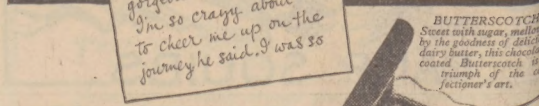 I'm so crazy about
to cheer me up on the
journey, he said. I was so
BUTTERSCOTCH
Sweet with sugar,
by the goodness of
dairy butter, this
coated Butterscotch
triumph of the
fectioner's art.